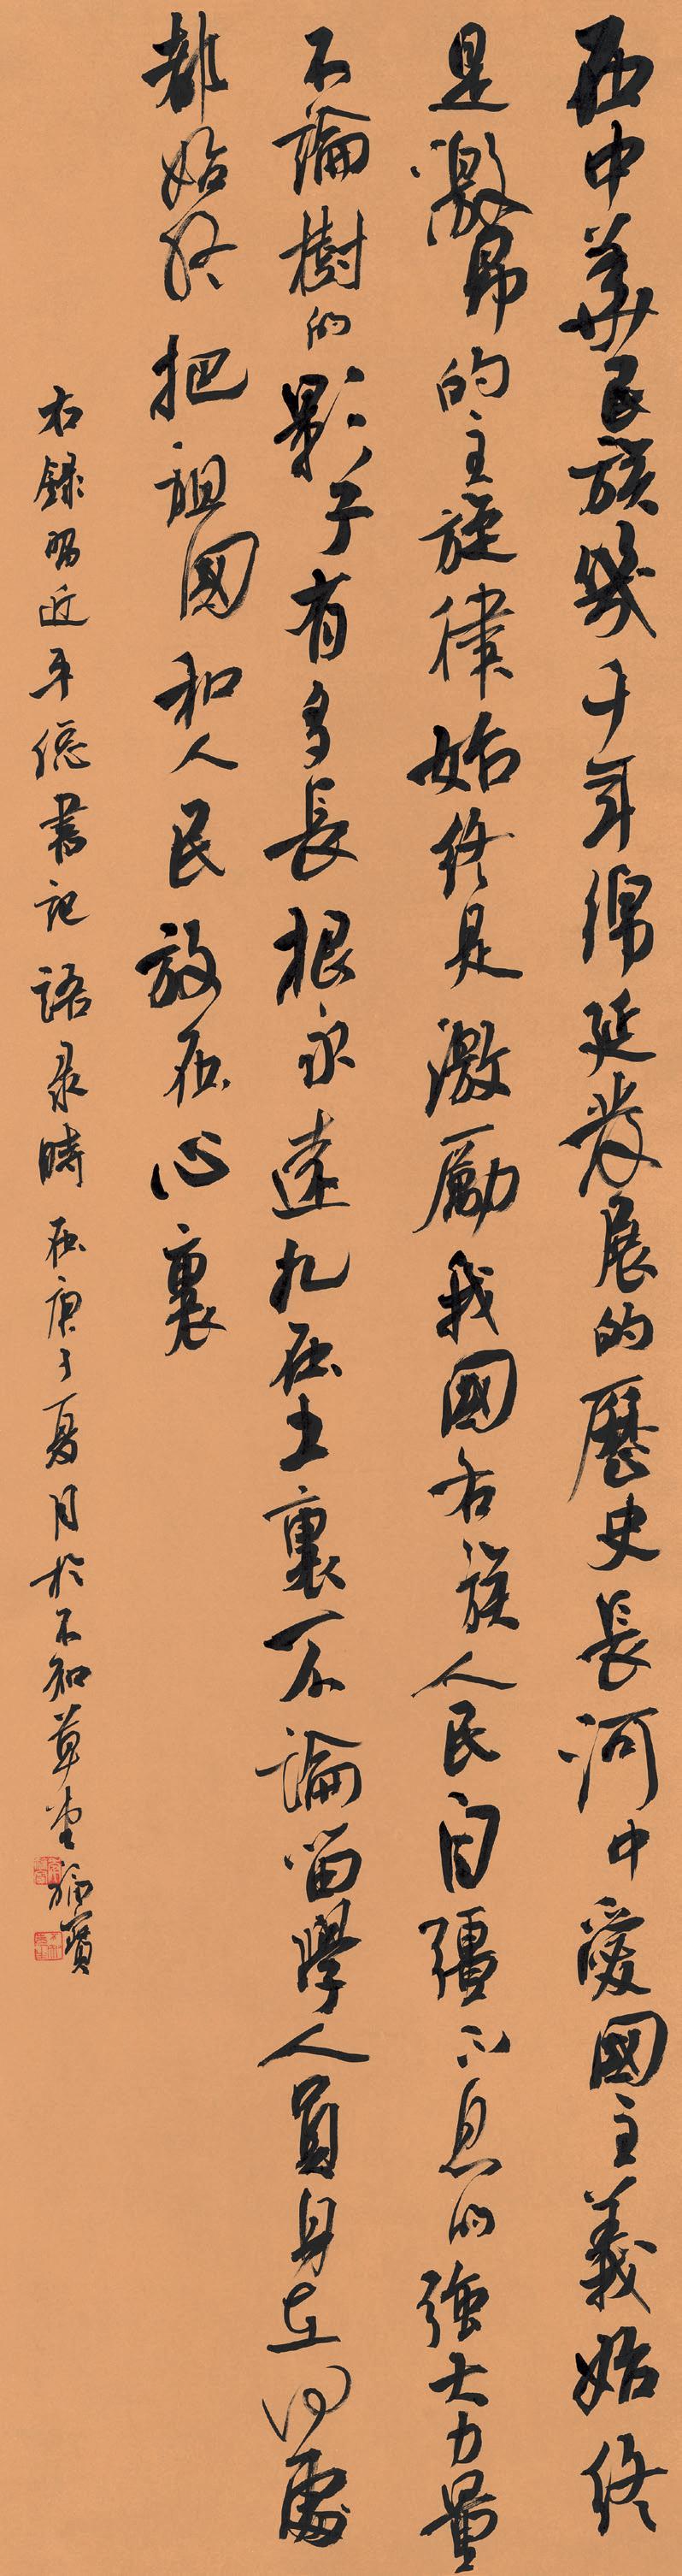 在中華民族幾千年綿延發展的歷史長河中愛國主義始終
是激昂的主旋律始終是激勵我國各族人民自彊不息的強大力量
不論樹的影子有多長根永遠扎在土裏不論留學人員身在何處
都始終把祖國和人民放在心裏
右録習近平總書記語录時在庚子夏月於不知草堂